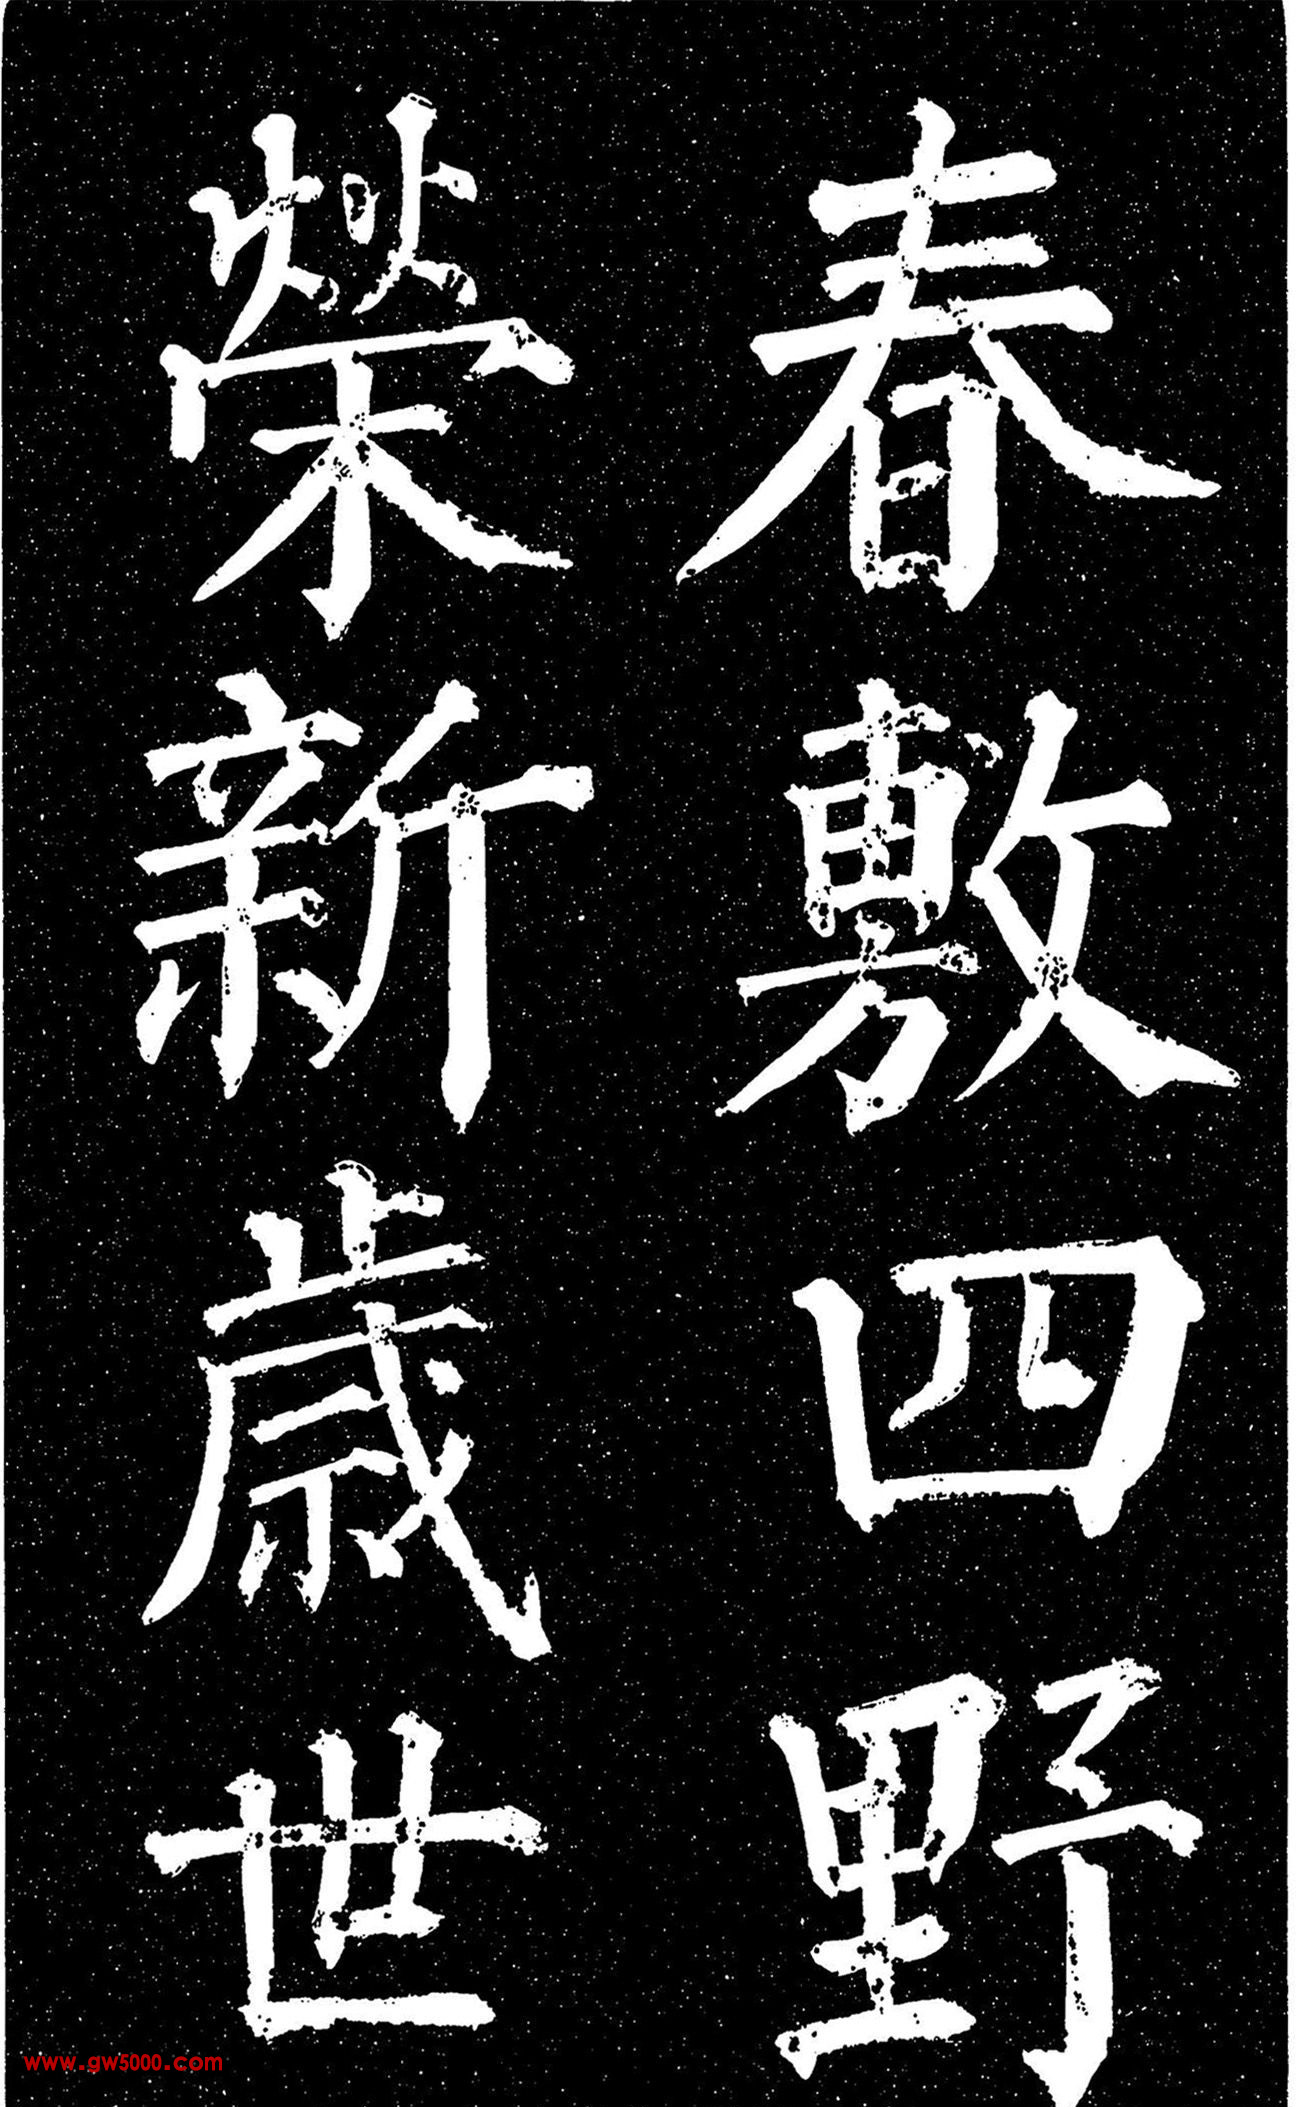 春敷四野
榮新歲世
www.gw5000.com